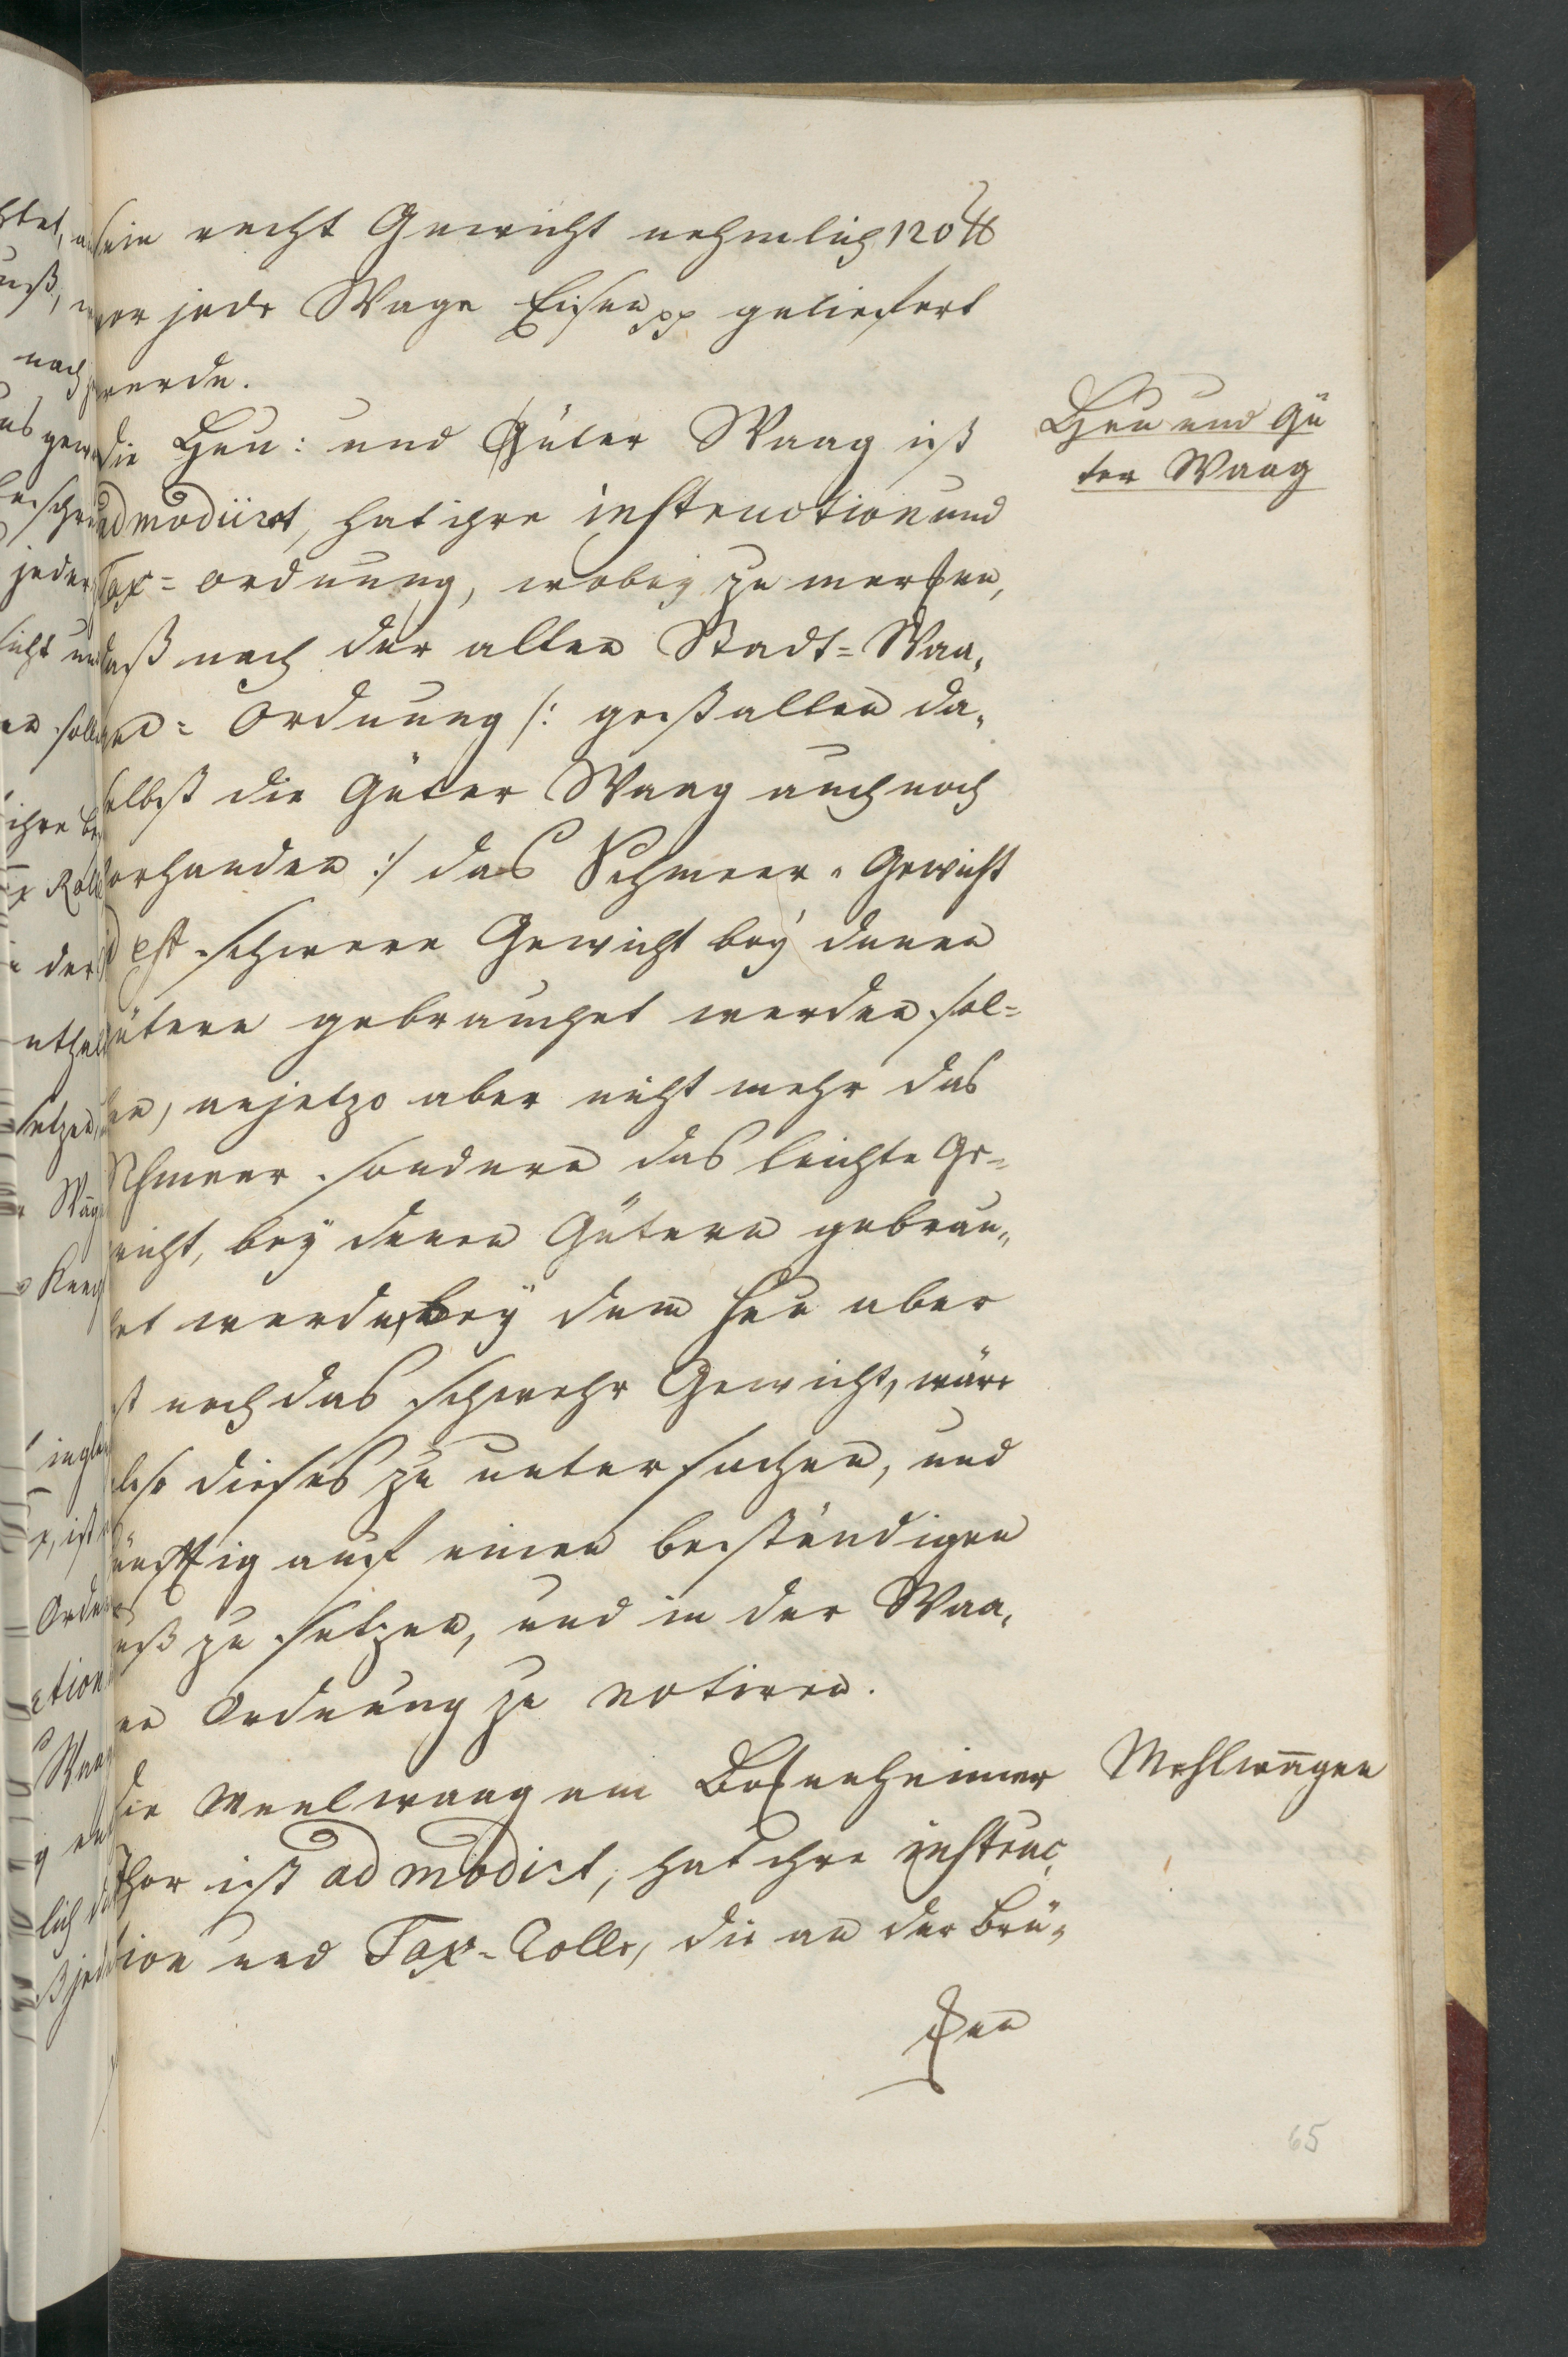 sein recht Gewicht nehmlich 120 ℔
vor jede Wage Eisen pp geliefert
werde.
Heu und Gü
ter Waag
die Heu: und Güter Waag ist
admodiirt, hat ihre instruction und
Tax=ordnung, wobey zu mercken,
daß nach der alten Stadt=Waa„
gen=Ordnung /: gestalten da„
selbst die Güter Waag auch noch
vorhanden :/ das Schmeer=Gewicht
id est schwere Gewicht bey denen
Gütern gebrauchet werden sol=
len, anjetzo aber nicht mehr das
Schmeer sondern das leichte Ge=
wicht, bey denen Gütern gebrau„
chet werde, bey dem Heu aber
ist noch das schwehr Gewicht, wäre
also dieses zu untersuchen, und
künfftig auf einen beständigen
Fuß zu setzen, und in der Waa„
gen Ordnung zu notiren.
Mehlwaagen
die Meelwaag am Bockenheimer
Thor ist admodirt, hat ihre instruc„
tion und Tax-Rolle, die an der Brü„
cken
65